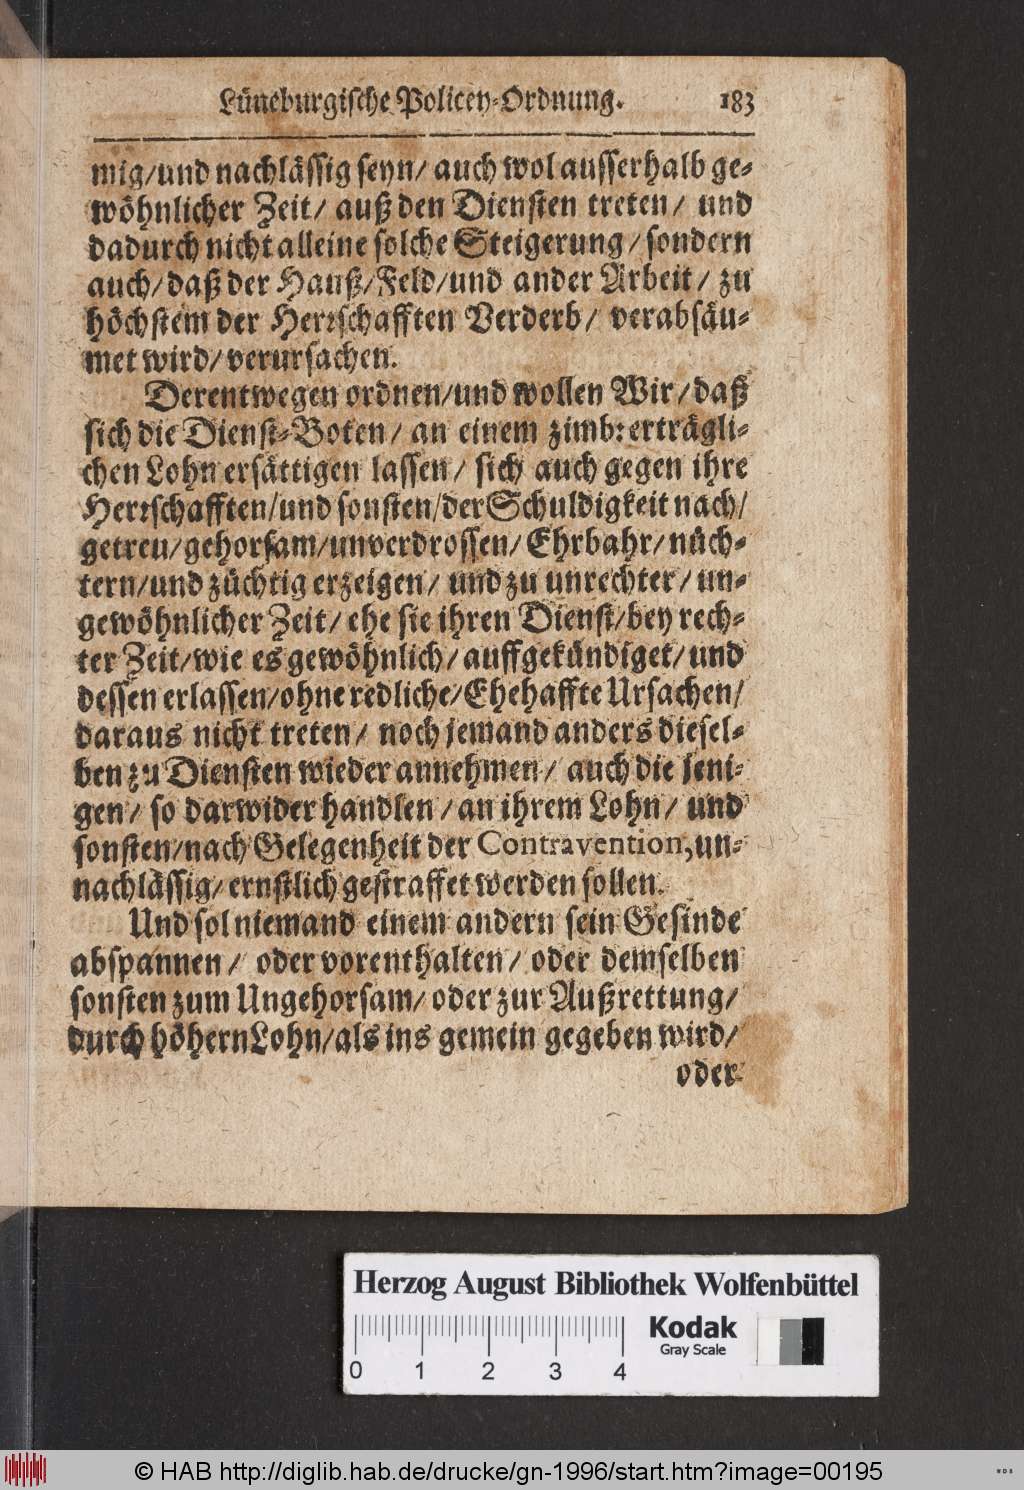 Lüneburgische Policey-Ordnung. 183
mig/und nachlässig seyn/ auch wol ausserhalb ge-
wöhnlicher Zeit/ auß den Diensten treten/ und
dadurch nicht alleine solche Steigerung/ sondern
auch/ daß der Hauß/Feld/und ander Arbeit/ zu
höchstem der Herrschafften Verderb/ verabsäu-
met wird/ verursachen.
Derentwegen ordnen/und wollen Wir/ daß
sich die Dienst-Boten/ an einem zimb: erträgli-
chen Lohn ersättigen lassen/ sich auch gegen ihre
Herrschafften/und sonsten/der Schuldigkeit nach/
getreu/gehorsam/unverdrossen/ Ehrbahr/ nüch-
tern/und züchtig erzeigen/ und zu unrechter/ un-
gewöhnlicher Zeit/ ehe sie ihren Dienst/bey rech-
ter Zeit/wie es gewöhnlich/ auffgekündiget/ und
dessen erlassen/ohne redliche/Ehehaffte Ursachen/
daraus nicht treten/ noch jemand anders diesel-
ben zu Diensten wieder annehmen/ auch die jeni-
gen/ so darwider handlen/ an ihrem Lohn/ und
sonsten/nach Gelegenheit der Contravention, un-
nachlässig/ ernstlich gestraffet werden sollen.
Und sol niemand einem andern sein Gesinde
abspannen/ oder vorenthalten/ oder demselben
sonsten zum Ungehorsam/ oder zur Außrettung/
durch höhern Lohn/als ins gemein gegeben wird/
oder
Herzog August Bibliothek Wolfenbüttel
Kodak
Gray Scale
0 1 2 3 4
© HAB http://diglib.hab.de/drucke/gn-1996/start.htm?image=00195
WDB